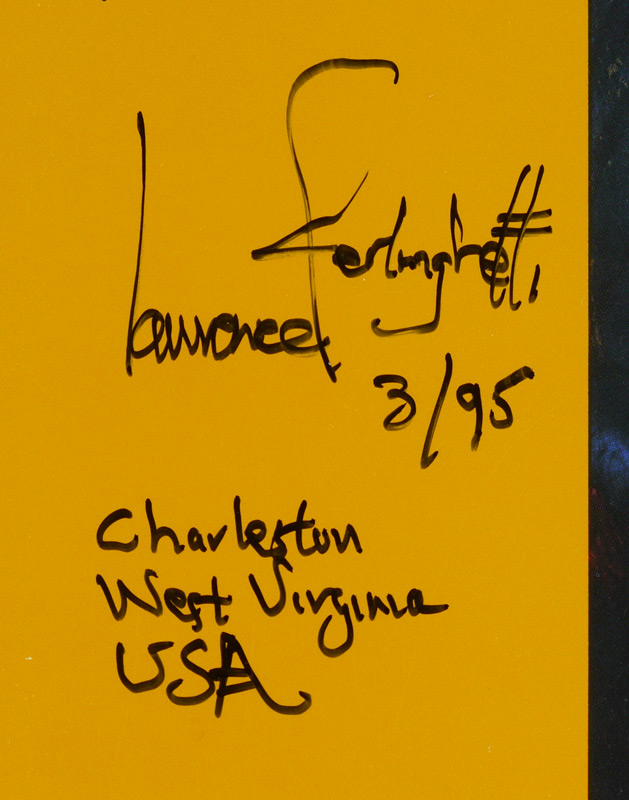 Lawrence Ferlinghetti
3/95
Charleston
West Virginia
USA